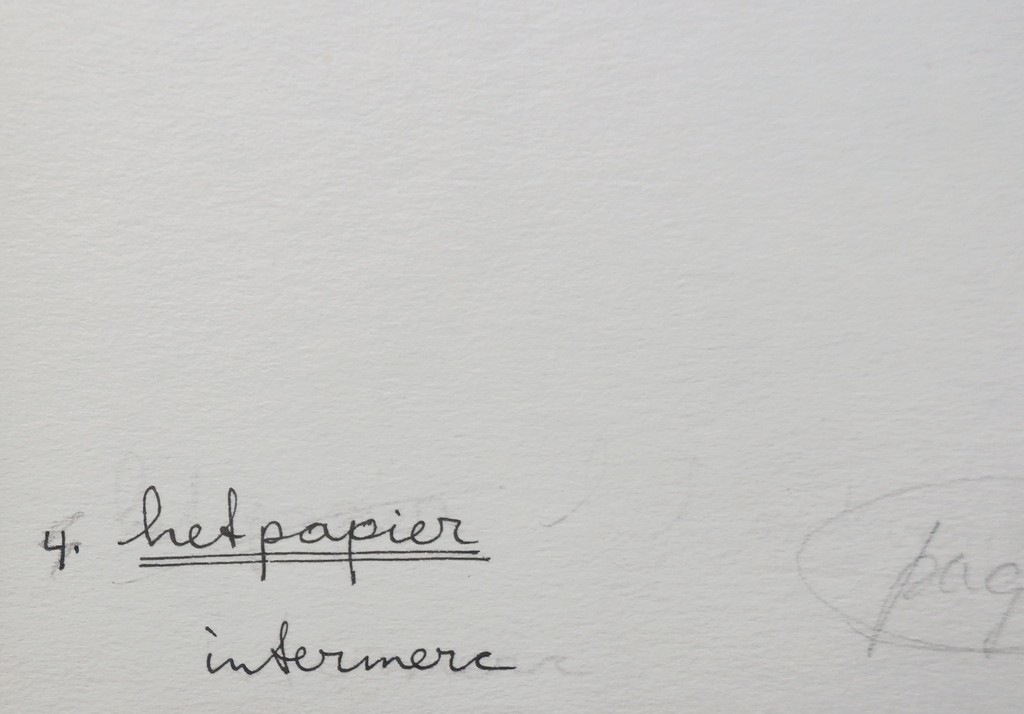 4. het papier
pag
intermerc